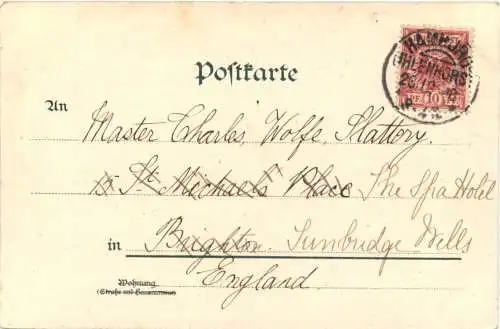 HAMBURG
UHLENHORST
10
Postkarte
An
Master Charles, Wolfe, Slattery.
15 St Michael's Place The Spa Hotel
in Brighton. Tunbridge Wells
England.
Wohnung
(Straße und Hausnummer)